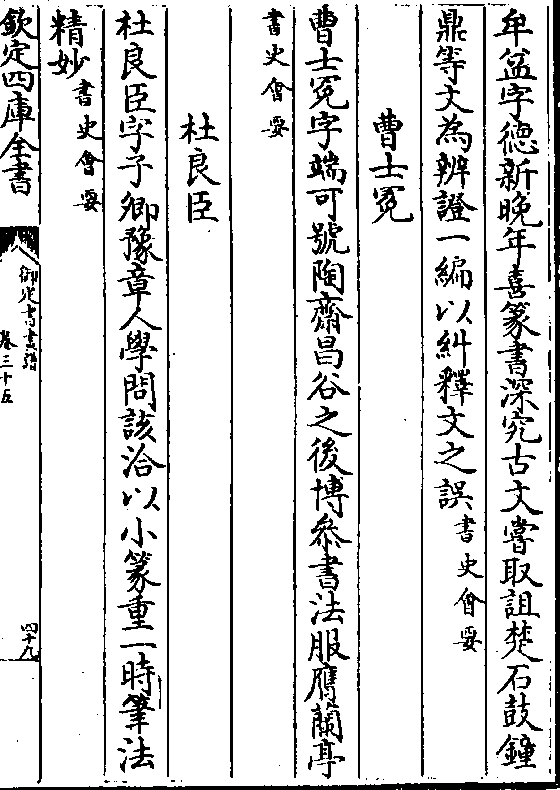 牟益字德新晚年喜篆書深究古文嘗取詛楚石鼓鐘
鼎等文為辨證一編以糾釋文之誤書史會要
曹士冕
曹士冕字端可號陶齋昌谷之後博參書法服膺蘭亭
書史會要
杜良臣
杜良臣字子卿豫章人學問該洽以小篆重一時筆法
精妙書史會要
欽定四庫全書
御定書畫譜
卷三十五
四十九